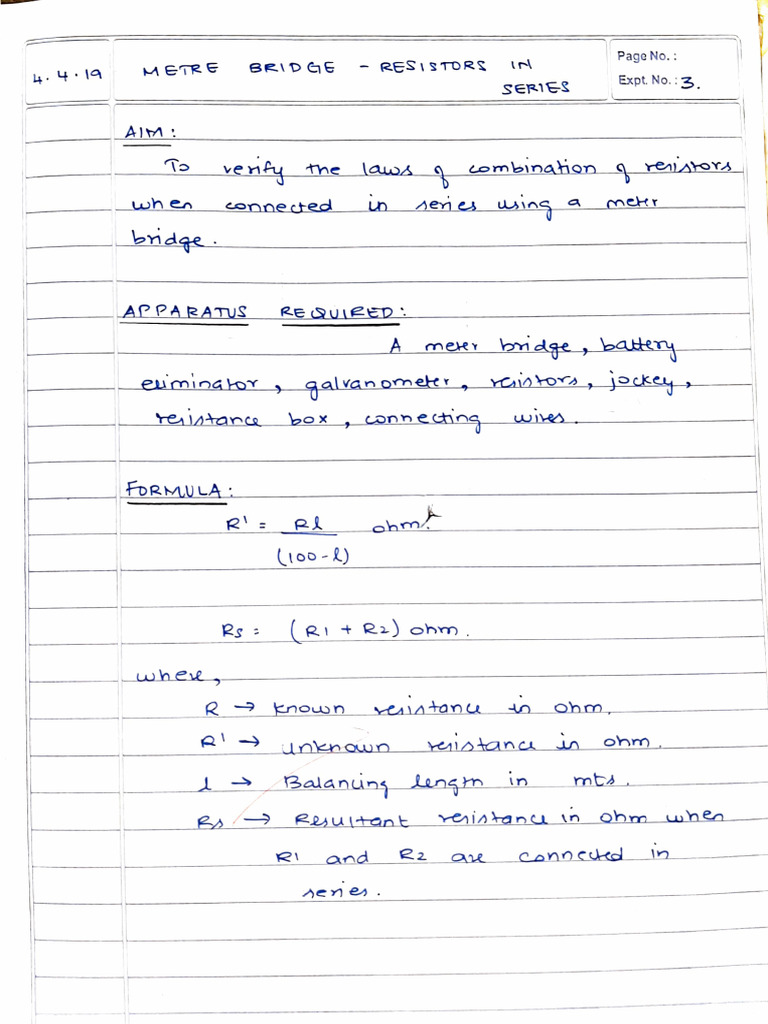 Page No. :
4.4.19 METRE BRIDGE - RESISTORS IN
SERIES
Expt. No. : 3.
AIM :
To verify the laws of combination of resistors
when connected in series using a meter
bridge.
APPARATUS REQUIRED :
A meter bridge, battery
eliminator, galvanometer, resistors, jockey,
resistance box, connecting wires.
FORMULA :
R' = Rl ohm.
(100-l)
Rs = (R1 + R2) ohm.
where,
R → known resistance in ohm.
R' → unknown resistance in ohm.
l → Balancing length in mts.
Rs → Resultant resistance in ohm when
R1 and R2 are connected in
series.